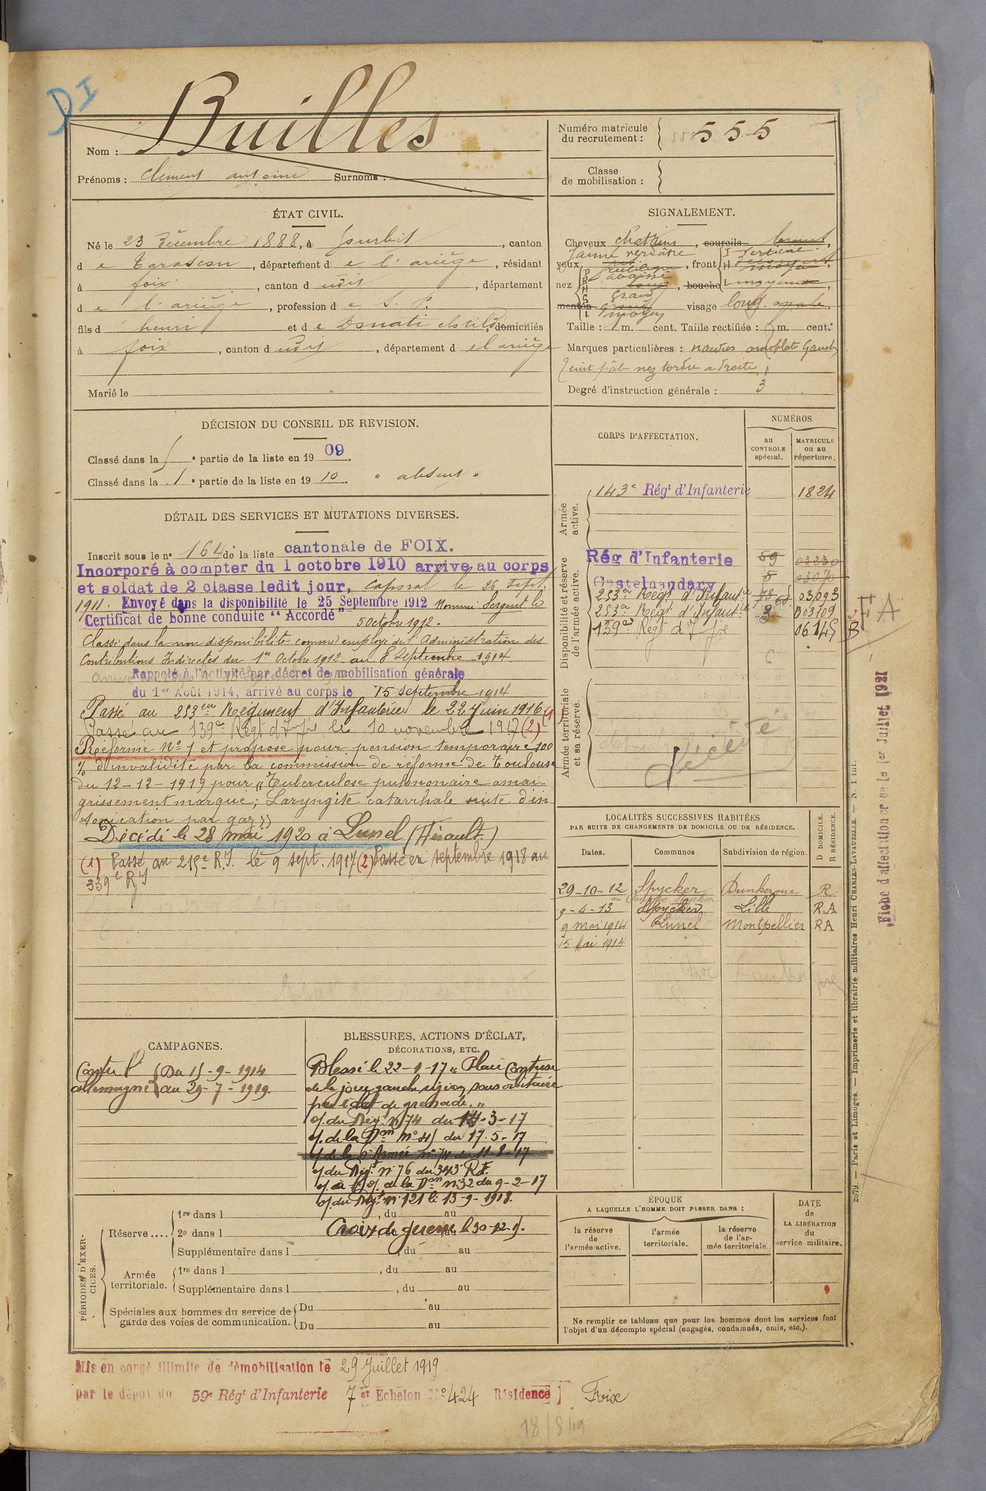 DI
Nom : Builles
Prénoms : Clément antoine Surnoms :
Numéro matricule du recrutement : 555
Classe de mobilisation :
ÉTAT CIVIL.
Né le 23 Décembre 1888, à Gourbit, canton
d e Tarascon, département d e l'ariège, résidant
à foix, canton d udit, département
d e l'ariège, profession d e S. P.
fils d henri et d e Donati domiciliés
à foix, canton d udit, département d e l'ariège
Marié le
SIGNALEMENT.
Cheveux chatains, sourcils
yeux jaune verdâtre, front verticale
nez, bouche moyenne
menton visage long. ovale
Taille : 1 m. cent. Taille rectifiée : 1 m. cent.
Marques particulières : naevus omoplate Gauche
nez tordu a droite
Degré d'instruction générale : 3
DÉCISION DU CONSEIL DE REVISION.
Classé dans la e partie de la liste en 1909.
Classé dans la 1 e partie de la liste en 1910. " absent "
DÉTAIL DES SERVICES ET MUTATIONS DIVERSES.
Inscrit sous le n° 164 de la liste cantonale de FOIX.
Incorporé à compter du 1 octobre 1910 arrivé au corps
et soldat de 2 classe ledit jour, Caporal le 26 sept.
1911. Envoyé dans la disponibilité le 25 Septembre 1912 Nommé Sergent le
Certificat de bonne conduite "Accordé" 5 Octobre 1912.
Classé dans la non disponibilité comme employé de l'Administration des
Contributions Indirectes du 1er Octobre 1912 au 8 Septembre 1914
Rappelé à l'activité par décret de mobilisation générale
du 1er Août 1914, arrivé au corps le 15 Septembre 1914
Passé au 253eme Régiment d'Infanterie le 22 Juin 1916 (1)
Passé au 139e Régt d'Ifie le 10 novembre 1917 (2)
Réformé N° 1 et proposé pour pension temporaire 100
% d'invalidité par la commission de réforme de Toulouse
du 12-12-1919 pour "Tuberculose pulmonaire amai-
grissement marqué; Laryngite catarrhale suite d'in
toxication par gaz"
Décédé le 28 mai 1920 à Lunel (Hérault.)
(1) Passé au 215e R.I. le 9 sept. 1917 (2) Passé en septembre 1918 au
339e RI
CORPS D'AFFECTATION.
NUMÉROS
AU CONTROLE spécial.
MATRICULE OU AU répertoire.
Armée active.
143e Régt d'Infanterie 1824
Disponibilité et réserve de l'armée active.
Rég d'Infanterie 59
Castelnaudary
253e Régt d'Infant 03093
253e Régt d'Infant 03709
139e Régt d'Ifie 06145
Armée territoriale et sa réserve.
Décédé
B FA
LOCALITÉS SUCCESSIVES HABITÉES
PAR SUITE DE CHANGEMENTS DE DOMICILE OU DE RÉSIDENCE.
Dates. Communes Subdivision de région. D DOMICILE. R RÉSIDENCE.
29-10-12 Spycker Dunkerque R
9-4-13 Spycker Lille R.A
9 mai 1914 Lunel Montpellier RA
15 Mai 1914
CAMPAGNES.
Contre l' Allemagne { Du 15-9-1914
au 29-7-1919
BLESSURES, ACTIONS D'ÉCLAT,
DÉCORATIONS, ETC.
Blessé le 22-1-17 "Plaie Contuse
de la joue gauche région sous orbitaire
par éclat de grenade."
o/ du Régt n° 74 du 14-3-17
o/ de la Don N° 81 du 17-5-17
o/ du Régt n° 76 du 343 RI.
o/ de la Don n° 32 du 9-2-17
o/ du Régt n° 121 le 13-9-1918.
Croix de guerre
PÉRIODES D'EXERCICES.
Réserve .... 1re dans l , du au
2e dans l
Supplémentaire dans l du au
Armée territoriale. 1re dans l , du au
Supplémentaire dans l , du au
Spéciales aux hommes du service de garde des voies de communication. Du au
Du au
ÉPOQUE
A LAQUELLE L'HOMME DOIT PASSER DANS :
la réserve de l'armée active.
l'armée territoriale.
la réserve de l'armée territoriale
DATE de LA LIBÉRATION du service militaire.
Ne remplir ce tableau que pour les hommes dont les services font
l'objet d'un décompte spécial (engagés, condamnés, omis, etc.).
Mis en congé illimité de démobilisation le 29 Juillet 1919
par le dépôt du 59e Régt d'Infanterie 7er Echelon N° 424 Résidence Foix
18/8/19
Fiche d'affectation créée le 1er Juillet 1921
2679. — Paris et Limoges. — Imprimerie et librairie militaires Henri CHARLES-LAVAUZELLE. — N. 1 int.